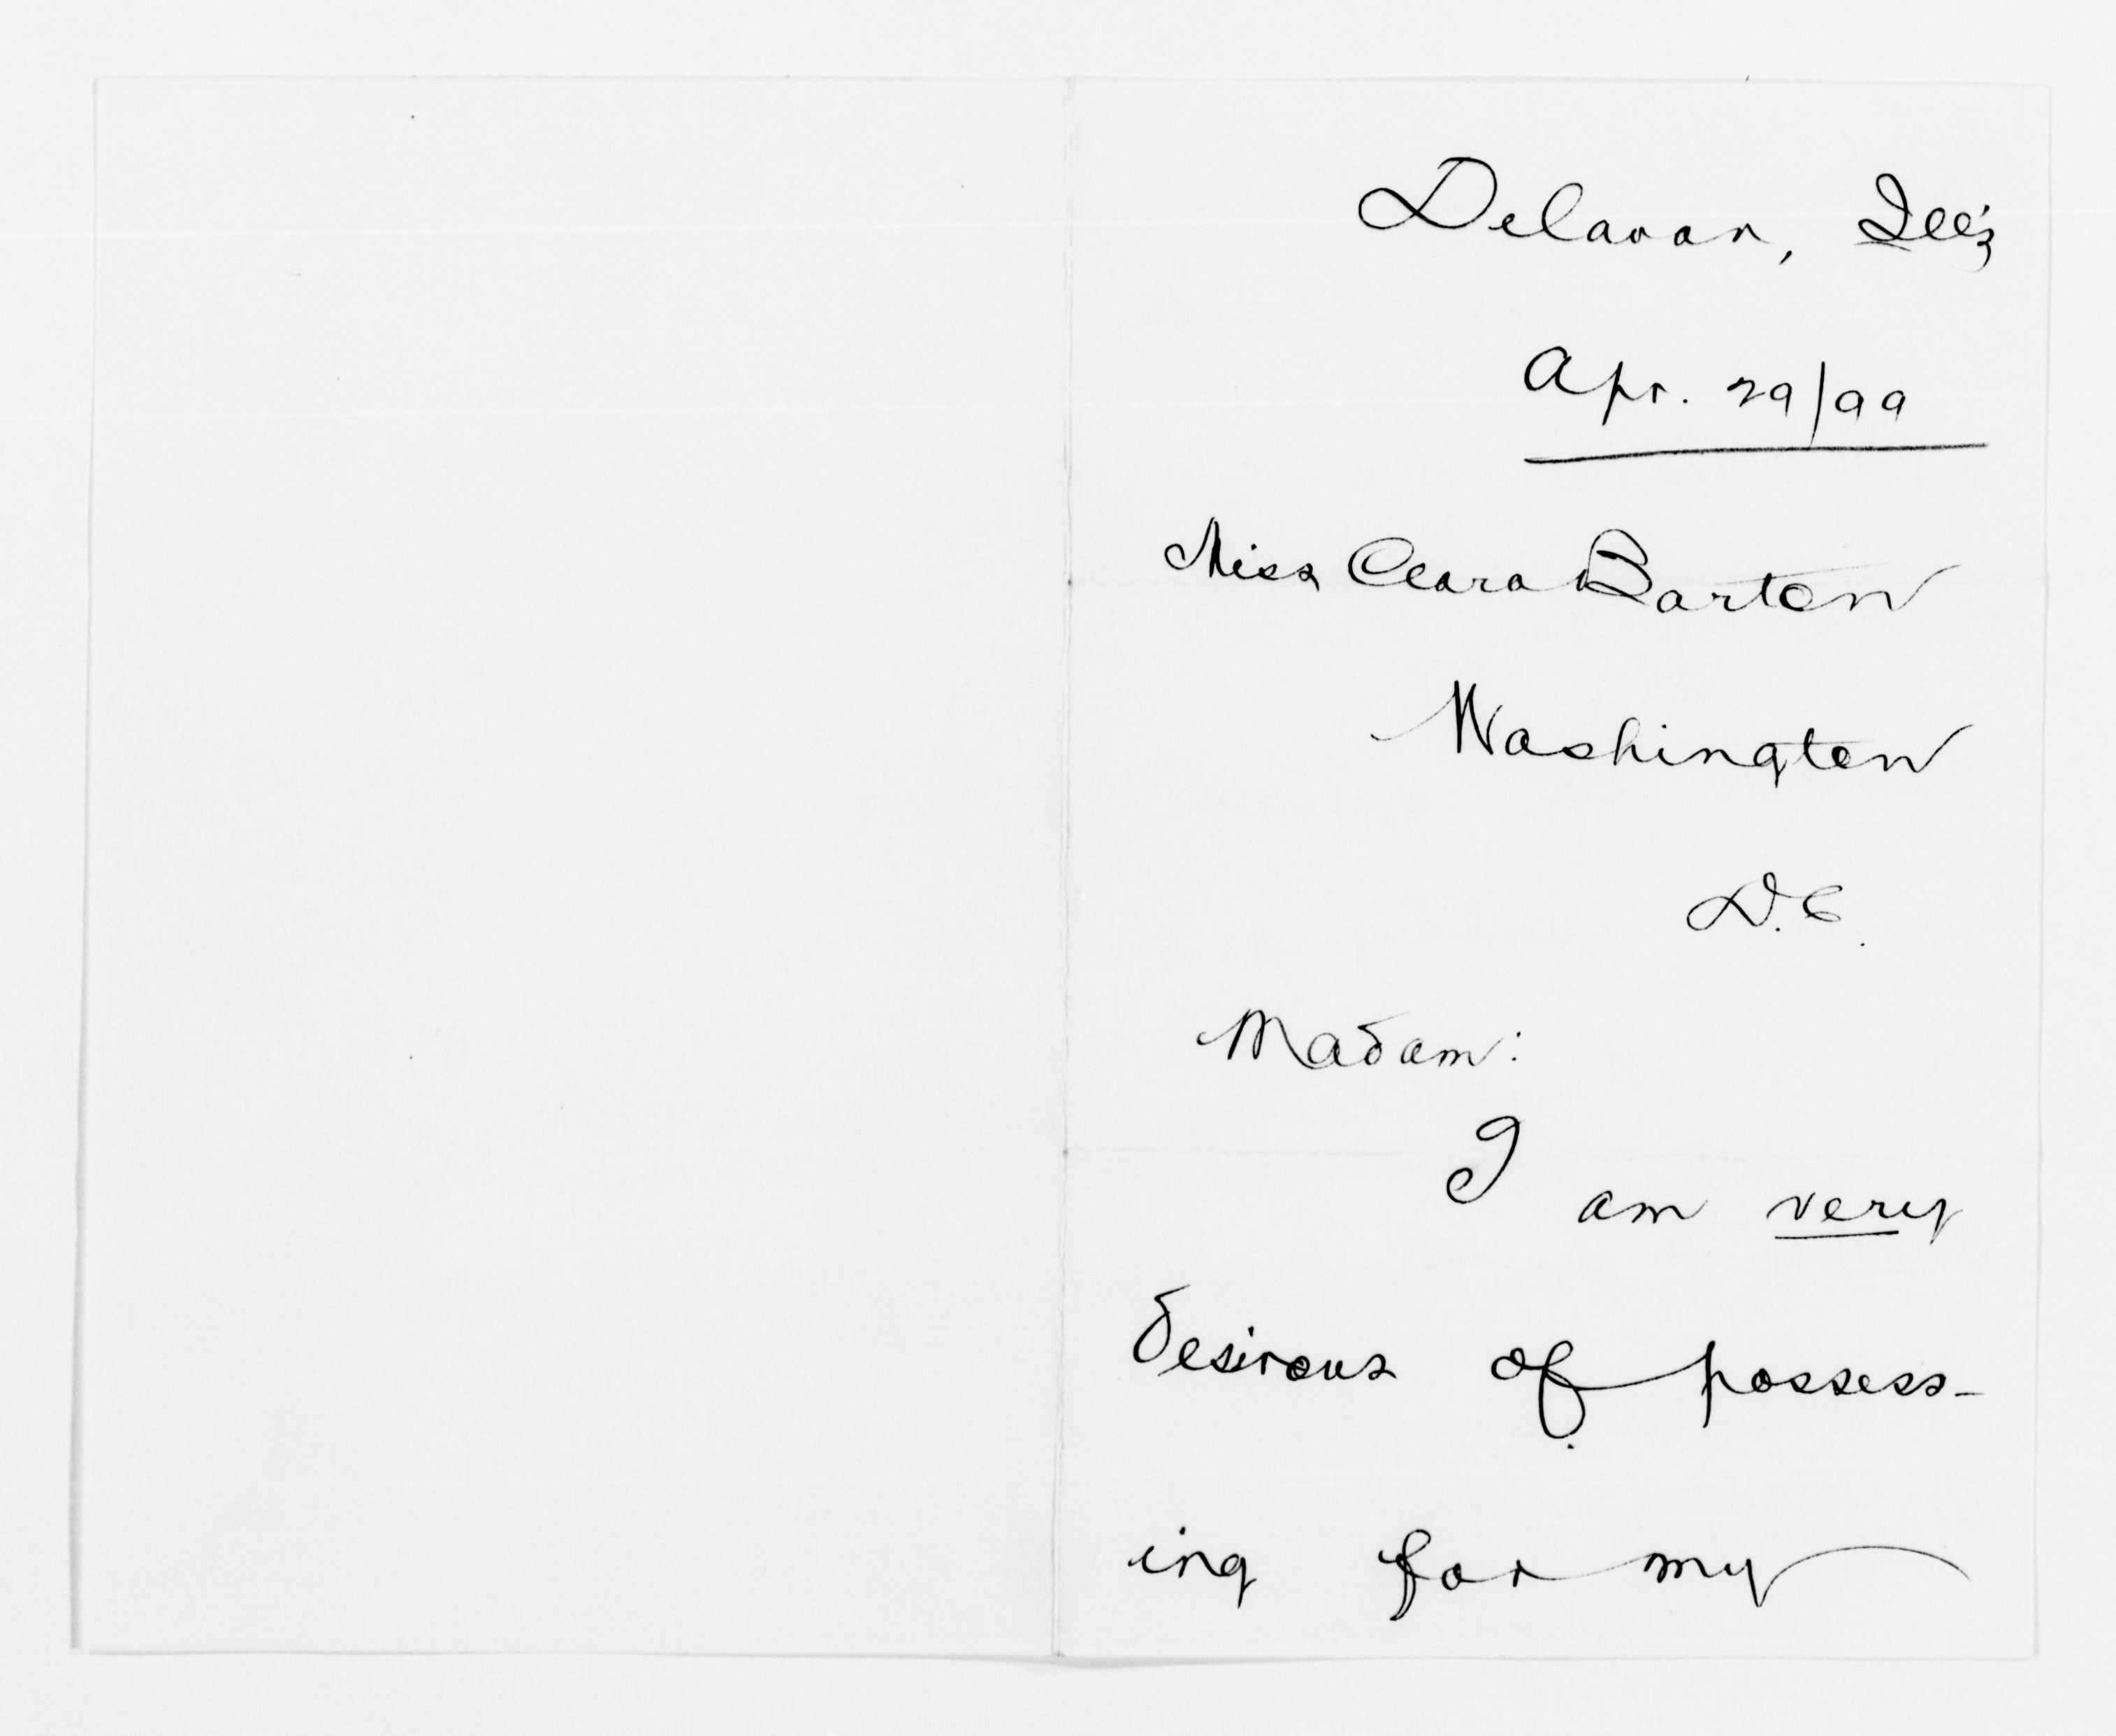 Delavan, Ill's
Apr. 29/99
Miss Clara Barton
Washington
D.C.
Madam:
I am very
desirous of possess-
ing for my